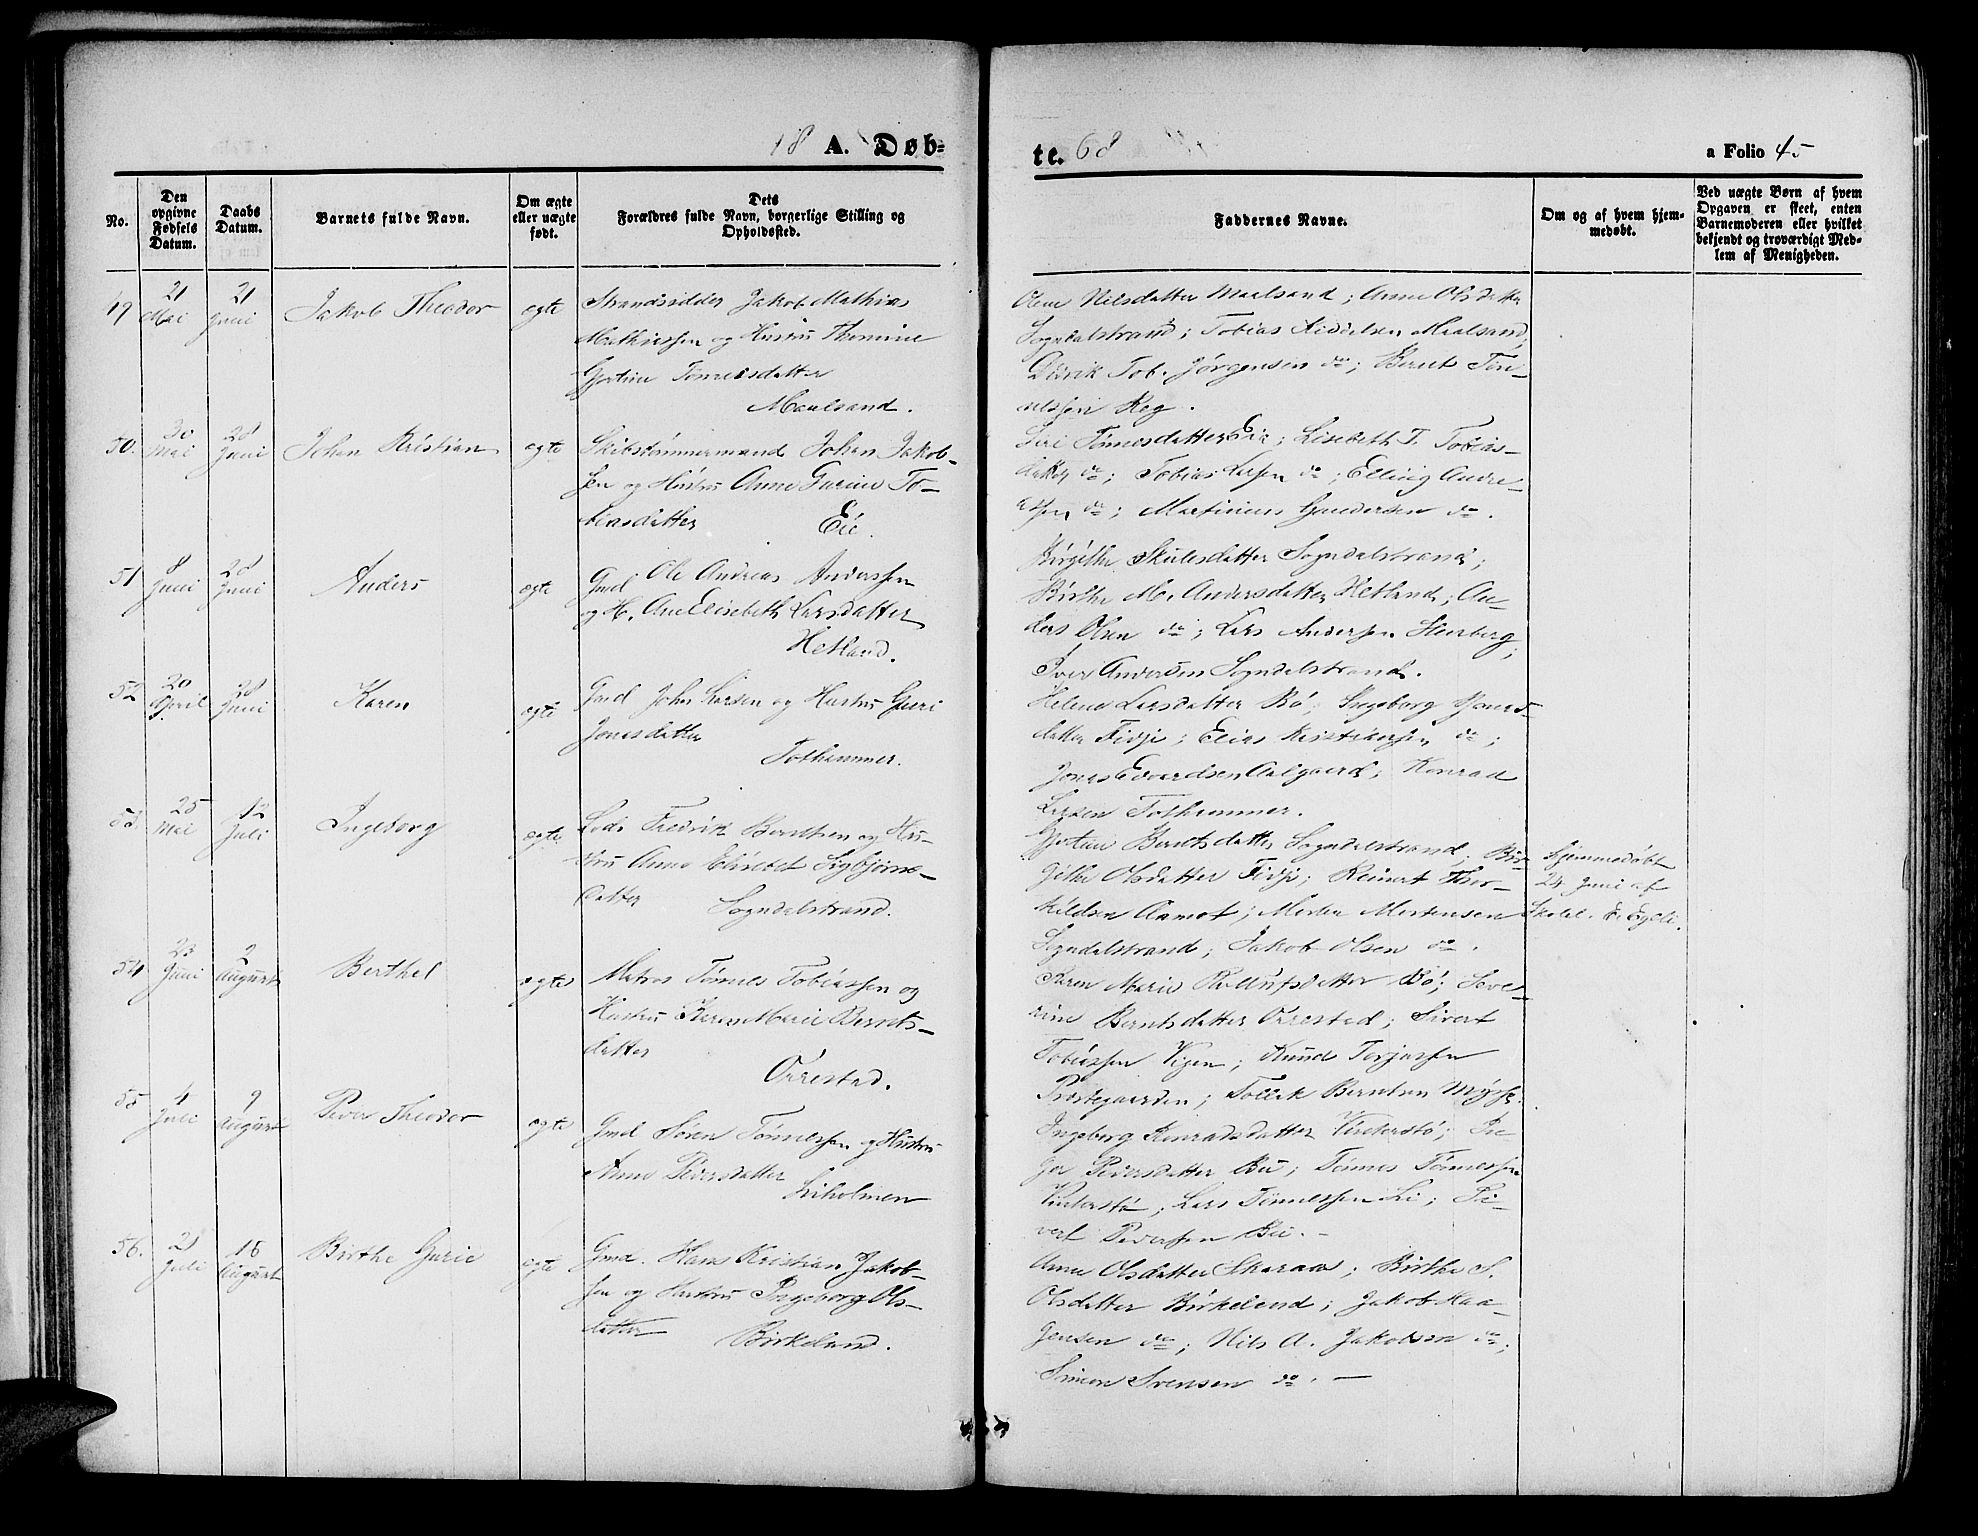 18 A. Døb=
te. 68
a Folio 45
No.
Den opgivne Fødsels Datum.
Daabs Datum.
Barnets fulde Navn.
Om ægte eller uægte født.
Dets Forældres fulde Navn, borgerlige Stilling og Opholdssted.
Faddernes Navne.
Om og af hvem hjem-medøbt.
Ved uægte Børn af hvem Opgaven er skeet, enten Barnemoderen eller hvilket bekjendt og troværdigt Med-lem af Menigheden.
49 21 Mai 21 Juni Jakob Theodor ægte
Strandsidder Jakob Mathias
Mathiassen og Hustru Thomine
Gjertine Tønnesdatter
Maalsand.
Olene Nilsdatter Maalsand; Anne Olsdatter
Sogndalstrand; Tobias Maalsand;
Didrik Tob. Jørgensen do; Bernt Tøn-
nessen Reg.
50. 30 Mai 28 Juni Johan Kristian ægte
Skibstømmermand Johan Jakob-
sen og Hustru Anne Gurine To-
biasdatter Eie.
Siri Tønnesdatter Eie; Lisebeth T. Tobias-
datter do; Tobias Larsen do; Elling Andre-
assen do; Martinius Gundersen do.
51 8 Juni 28 Juni Anders ægte
Gmd Ole Andreas Anderssen
og H. Ane Elisebeth Larsdatter
Hetland.
Birgithe Skulesdatter Sogndalstrand;
Birthe M. Andersdatter Hetland; An-
ders Olsen do; Lars Andersen Stensberg;
Iver Andersen Sogndalstrand.
52 20 April 28 Juni Karen ægte
Gmd John Larsen og Hustru Guri
Jonasdatter
Tothammer.
Helene Larsdatter Bø; Ingeborg Jonas-
datter Fidje; Elias Kristiansen do;
Jonas Edvardsen Aalgaard; Konrad
Larsen Tothammer.
53. 25 Mai 12 Juli Ingeborg ægte
Lods Fredrik Berntsen og Hu-
stru Anne Elisebet Sigbjørns-
datter Sogndalstrand.
Gjertine Berntsdatter Sogndalstrand; Bir-
githe Olsdatter Fidje; Reinert Thor-
kildsen Aamot; Morten Mortensen
Sogndalstrand; Jakob Olsen do.
Hjemmedøbt
24 Juni af
Skolel. E. Egeli.
54. 23 Juni 2 August Berthel ægte
Matros Tønnes Tobiassen og
Hustru Karen Marie Bernts-
datter
Ørrestad.
Karen Marie Rollufsdatter Bø; Seve-
rine Berntsdatter Ørrestad; Sivert
Tobiassen Vigen; Knud Torjussen
Præstegaarden; Tollek Berntsen
55 4 Juli 9 August Peder Theodor ægte
Gmd Søren Tønnessen og Hustru
Anne Pedersdatter
Liholmen
Ingeborg Konradsdatter Vinterstø;
Pedersdatter Bu; Tønnes Tønnessen
Vinterstø; Lars Tønnessen Li; Si-
vert Pederssen Bu.
56. 21 Juli 16 August Birthe Gurie ægte
Gmd. Hans Kristian Jakob-
sen og Hustru Ingeborg Ols-
datter
Birkeland.
Anne Olsdatter Skaraas; Birthe S.
Olsdatter Birkeland; Jakob Haa-
gensen do; Nils A. Jakobsen do;
Simon Svensen do. —